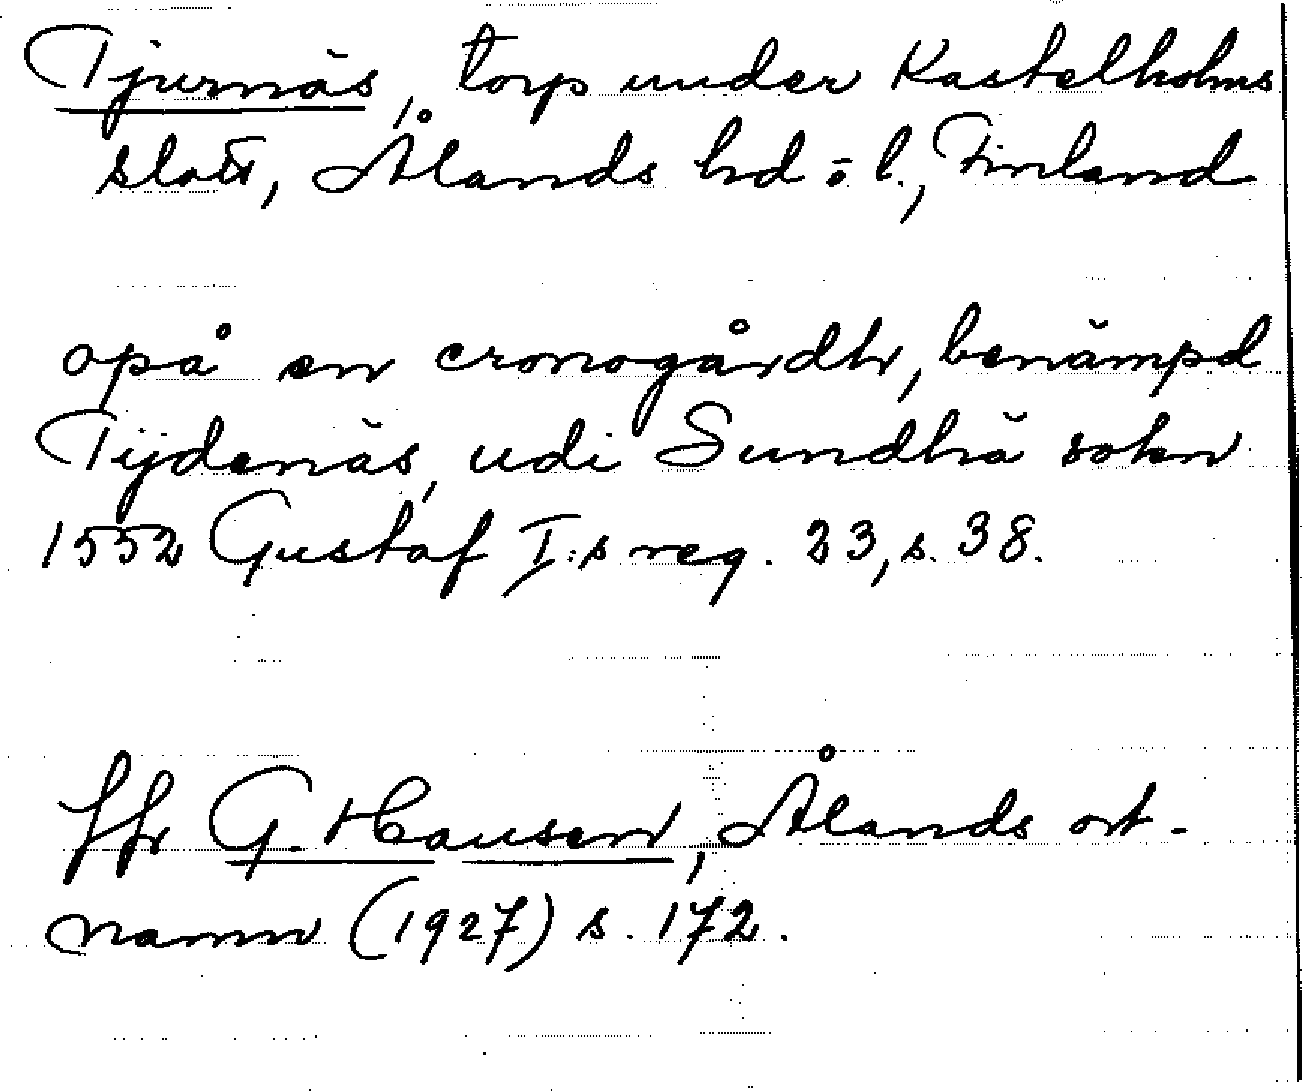 Tjurnäs, torp under Kastelholms
slott, Ålands hd o. l., Finland
opå en cronogårdh, benämpd
Tijdenäs, udi Sundhä sokn
1552 Gustaf I:s reg. 23, s. 38.
Jfr G. Hausen, Ålands ort-
namn (1927) s. 172.